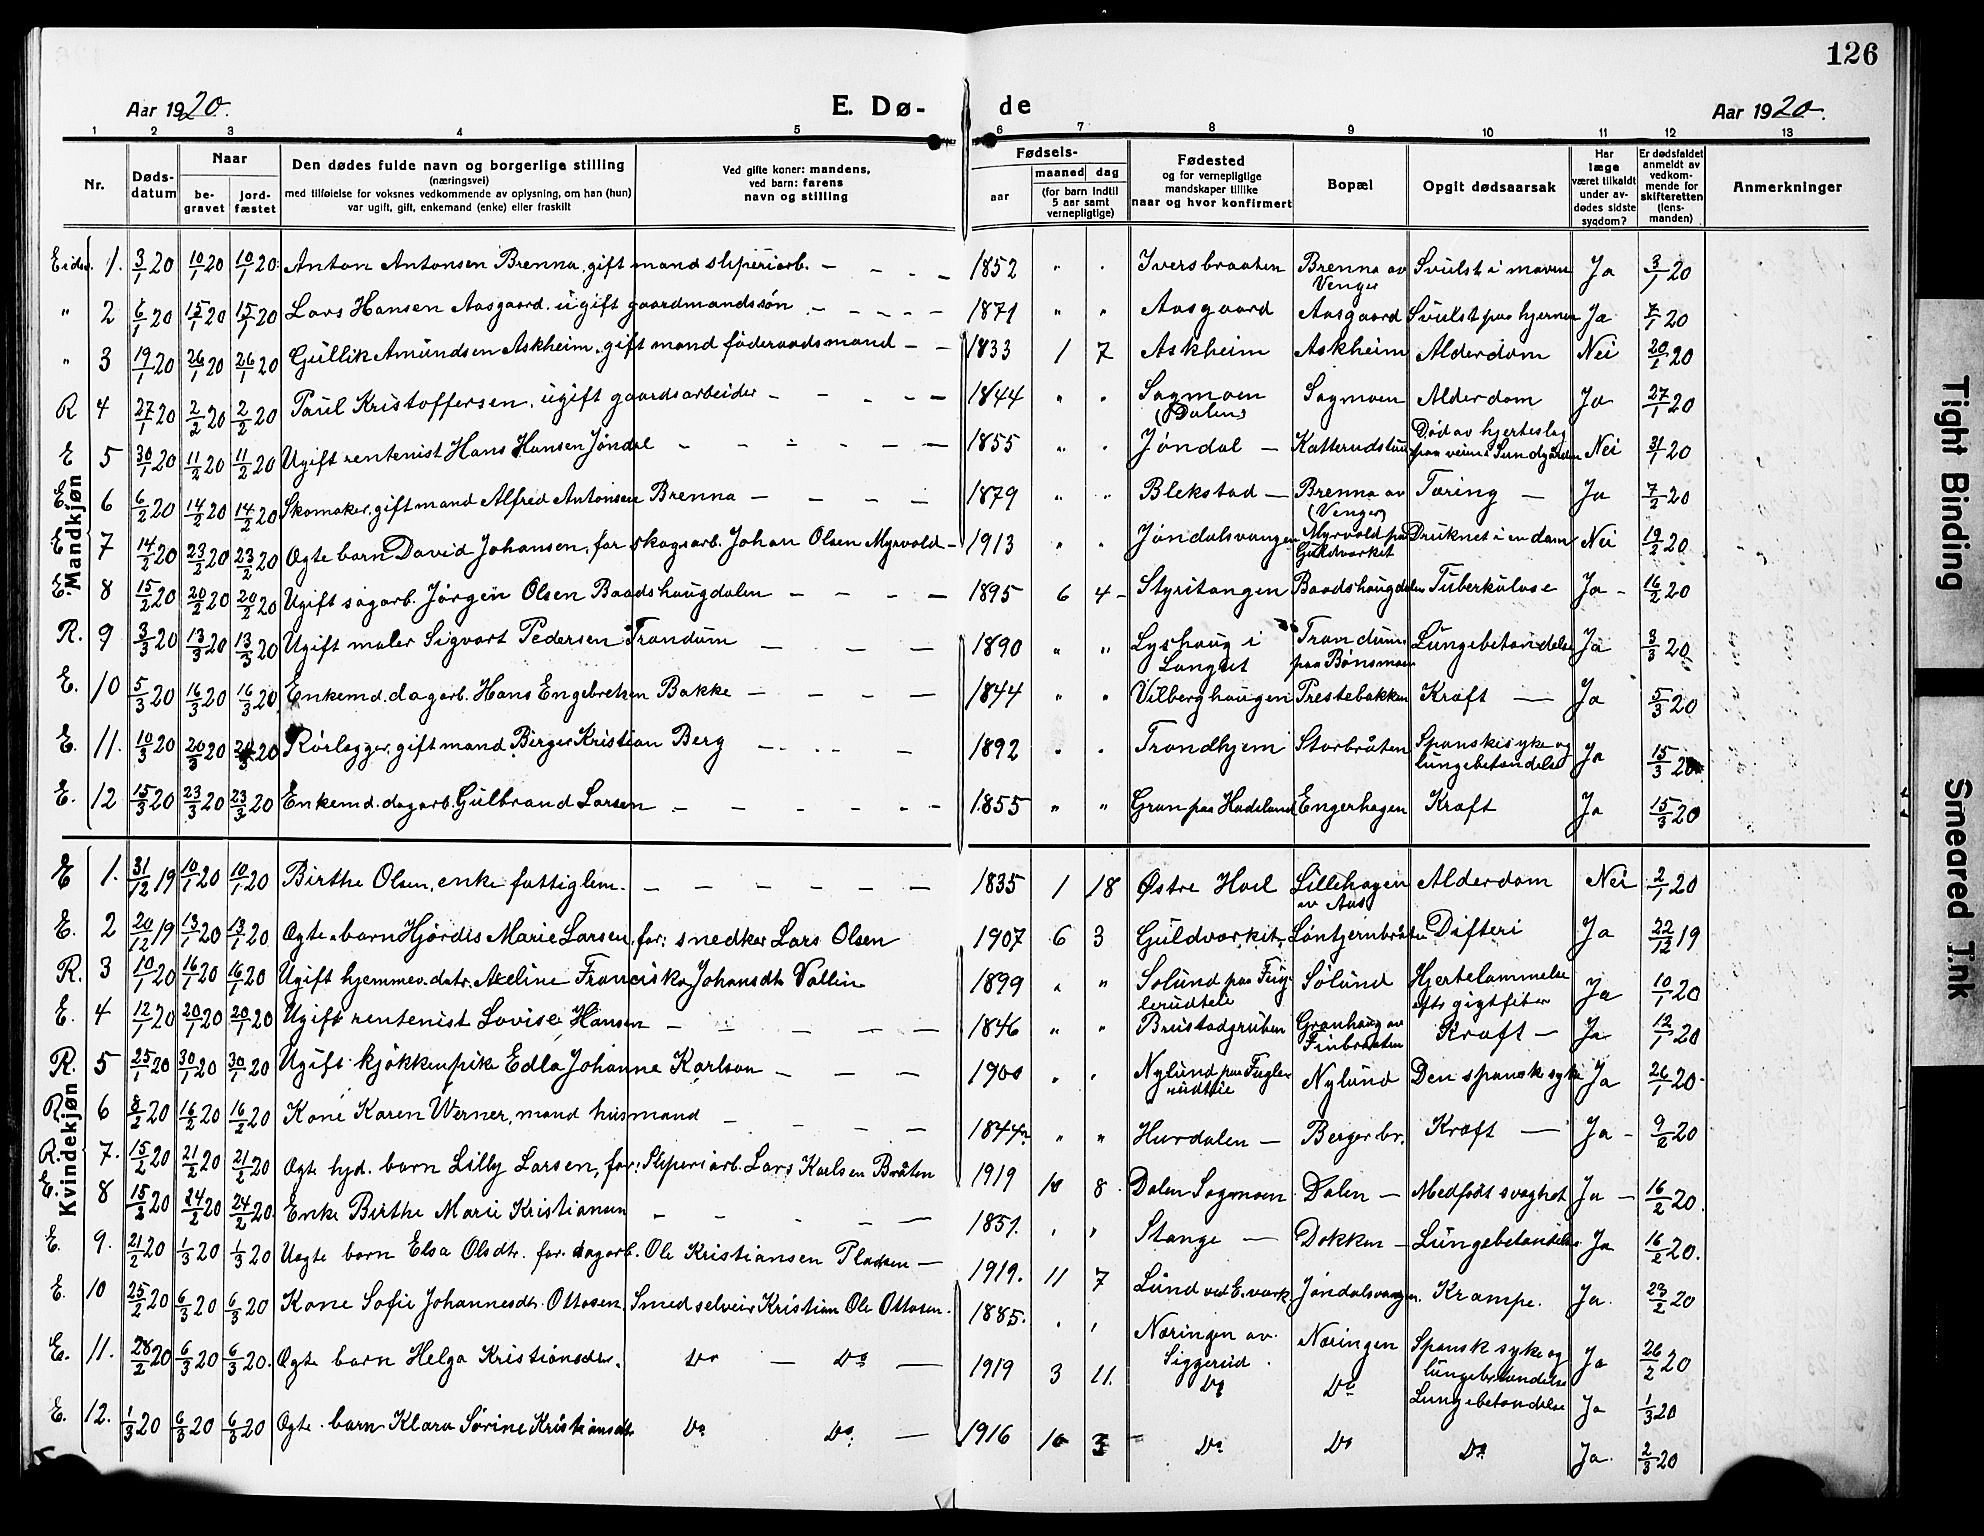 126
Aar 1920. E. Dø- de Aar 1920.
1 2 3 4 5 6 7 8 9 10 11 12 13
Nr. Døds-datum Naar be-gravet jord-fæstet Den dødes fulde navn og borgerlige stilling (næringsvei) med tilføielse for voksnes vedkommende av oplysning, om han (hun) var ugift, gift, enkemand (enke) eller fraskilt Ved gifte koner: mandens, ved barn: farens navn og stilling Fødsels- aar maaned dag (for barn indtil 5 aar samt vernepligtige) Fødested og for vernepligtige mandskaper tillike naar og hvor konfirmert Bopæl Opgit dødsaarsak Har læge været tilkaldt under av-dødes sidste sygdom? Er dødsfaldet anmeldt av vedkom-mende for skifteretten (lens-manden) Anmerkninger
Mandkjøn
Eidsv. 1. 3/1 20 10/1 20 10/1 20 Anton Antonsen Brenna, gift mand sliperiarb. 1852 " " Iversbraaten Brenna av Venger Svulst i maven Ja 3/1 20
" 2 6/1 20 15/1 20 15/1 20 Lars Hansen Aasgaard. ugift gaardmandssøn 1871 " " Aasgaard Aasgaard Svulst paa hjernen Ja 7/1 20
" 3 19/1 20 26/1 20 26/1 20 Gullik Amundsen Askheim, gift mand føderaadsmand 1833 1 7 Askheim Askheim Alderdom Nei 20/1 20
R 4 27/1 20 2/2 20 2/2 20 Paul Kristoffersen, ugift gaardsarbeider 1844 " " Sagmoen (Dalen) Sagmoen Alderdom Ja 27/1 20
E 5 30/1 20 11/2 20 11/2 20 Ugift rentenist Hans Hansen Jøndal 1855 " " Jøndal Katterudstuen Død av hjerteslag paa veien i Sundgaarden Nei 31/1 20
E 6 6/2 20 14/2 20 14/2 20 Skomaker, gift mand Alfred Antonsen Brenna 1879 " " Blekstad Brenna av (Venger) Tæring Ja 7/2 20
E 7 14/2 20 23/2 20 23/2 20 Ogte barn David Johansen, far skogsarb. Johan Olsen Myrvold 1913 " " Jøndalsvangen Myrvold paa Guldverket Druknet i en dam Nei 19/2 20
E. 8 15/2 20 20/2 20 20/2 20 Ugift sagarb. Jørgen Olsen Baadshaugdalen 1895 6 4 Styritangen Baadshaugdalen Tuberkulose Ja 16/2 20
R. 9 3/3 20 13/3 20 13/3 20 Ugift maler Sigvart Pedersen Trandum 1890 " " Lyshaug i Langset Trandum paa Bønsmoen Lungebetændelse Ja 3/3 20
E. 10 5/3 20 16/3 20 16/3 20 Enkemd. dagarb. Hans Engebretsen Bakke 1844 " " Vilberghaugen Prestebakken Kræft Ja 5/3 20
E. 11. 10/3 20 20/3 20 20/3 20 Rørlegger, gift mand Birger Kristian Berg 1892 " " Trondhjem Storbråten Spanskesyke og lungebetændelse Ja 15/3 20
E. 12 15/3 20 23/3 20 23/3 20 Enkemd. dagarb. Gulbrand Larsen 1855 " " Gran paa Hadeland Engerhagen Kræft Ja 15/3 20
Kvindekjøn
E 1. 31/12 19 10/1 20 10/1 20 Birthe Olsen, enke fattiglem. 1835 1 18 Østre Hoel Lillehagen av Aas Alderdom Nei 2/1 20
E. 2 20/12 19 13/1 20 13/1 20 Ogte barn Hjørdis Marie Larsen, far: snedker Lars Olsen 1907 6 3 Guldverket Løntjernbråten Difteri Ja 22/12 19
R. 3 10/1 20 16/1 20 16/1 20 Ugift hjemmev. datr. Axeline Franciska Johansdtr Vallin 1899 " " Sølund paa Fuglerudteie Sølund Hjertelammelse efts gigtfeber Ja 10/1 20
E. 4 12/1 20 20/1 20 20/1 20 Ugift rentenist Lovise Hansen 1846 " " Brustadgruben Granhaug av Finbraaten Kræft Ja 12/1 20
R. 5 25/1 20 30/1 20 30/1 20 Ugift kjøkkenpike Edla Johanne Karlson 1900 " " Nylund paa Fuglerudteie Nylund Den spanske syke Ja 26/1 20
R 6 8/2 20 16/2 20 16/2 20 Kone Karen Werner, mand husmand 1844 " " Hurdalen Berger br. Kræft Ja 9/2 20
R. 7. 15/2 20 21/2 20 21/2 20 Ogte hjd. barn Lilly Larsen, far: Sliperiarb. Lars Karlsen Bråten 1919 10 8 Dalen Sagmoen Dalen Medfødt svaghet Ja 16/2 20.
E. 8 15/2 20 24/2 20 24/2 20. Enke Birthe Marie Kristiansen 1851. " " Stange Dokken Lungebetændelse Ja 16/2 20.
E. 9. 21/2 20 1/3 20 1/3 20 Uægte barn Elsa Olsdtr. far: dagarb. Ole Kristiansen Pladsen 1919. 11 7 Lund ved E. værk Jøndalsvangen. Krampe. Ja. 23/2 20
E. 10 25/2 20 6/3 20 6/3 20 Kone Sofie Johannesdtr. Ottosen, Smed selveier Kristian Ole Ottosen. 1885. " " Næringen av Siggerud. Næringen Spansk syke og lungebetændelse Ja 26/2 20
E. 11. 28/2 20 6/3 20 6/3 20. Ogte barn Helga Kristiansdtr. Do Do 1919 3 11. Do Do Lungebetændelse Ja 1/3 20
E. 12. 1/3 20 6/3 20 6/3 20 Ogte barn Klara Sørine Kristiansdtr. Do Do. 1916 10 3 Do Do Do Ja. 2/3 20
Tight Binding
Smeared Ink